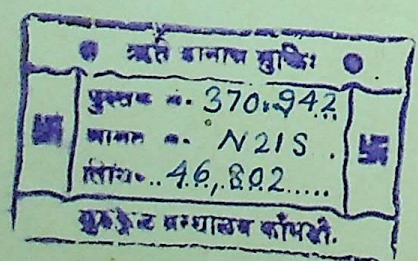 ऋते ज्ञानान्न मुक्तिः
पुस्तक नं. 370.942
आगत नं. N21S.
तिथि.. 46,802.....
गुरुकुल ग्रन्थालय काँगड़ी.